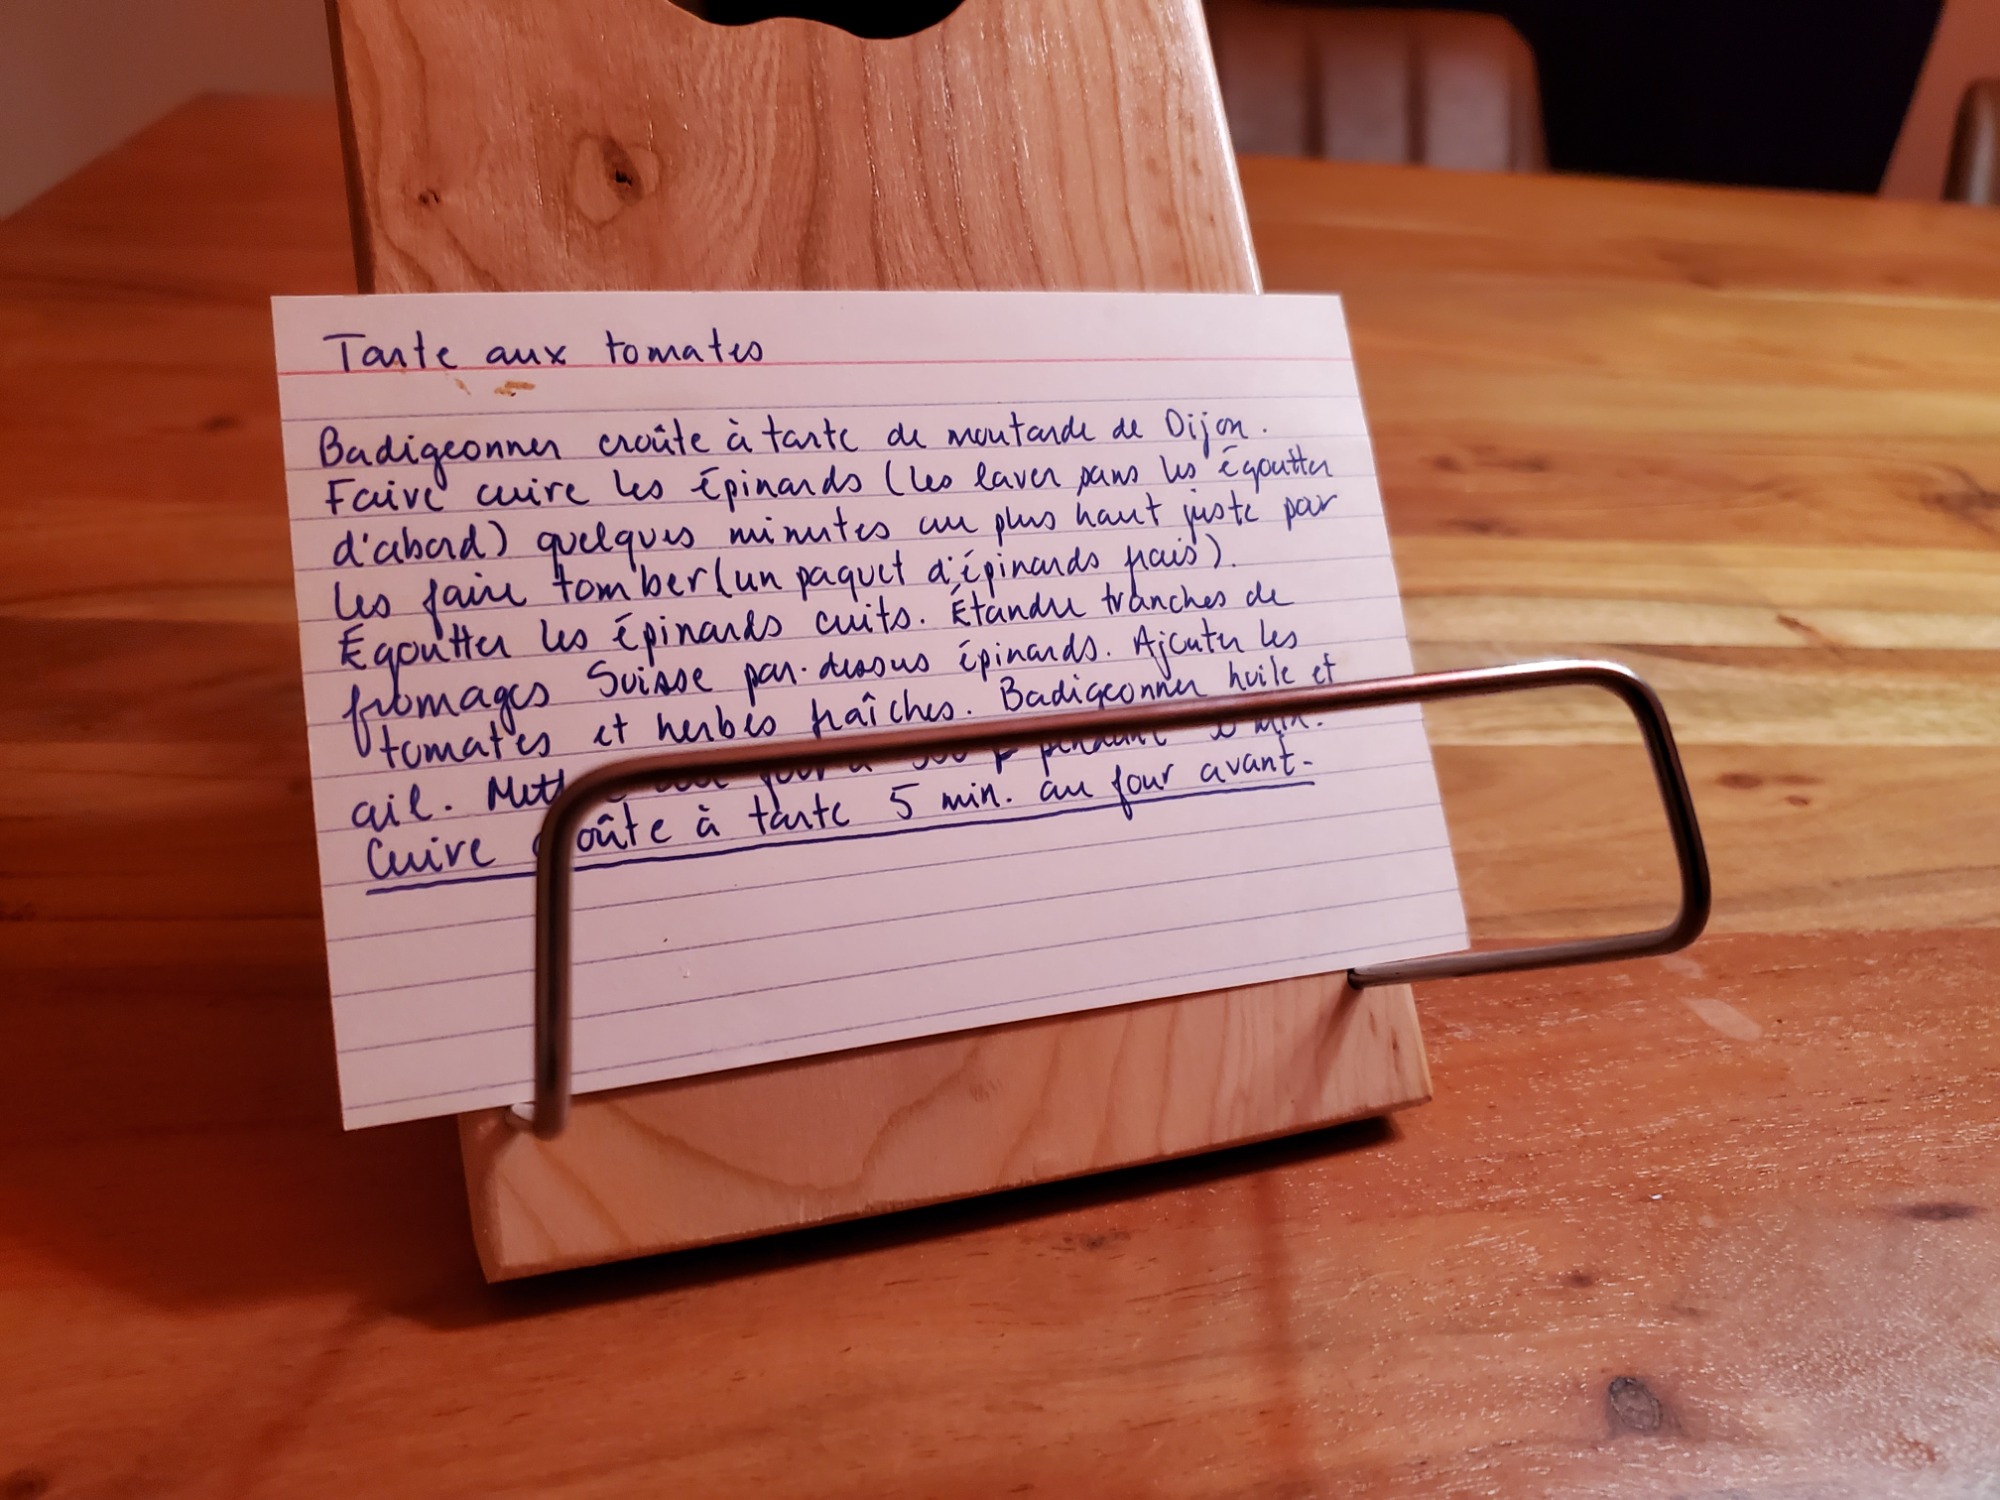 Tarte aux tomates
Badigeonner croûte à tarte de moutarde de Dijon.
Faire cuire les épinards (les laver sans les égoutter
d'abord) quelques minutes au plus haut juste par
les faire tomber (un paquet d'épinards frais).
Égoutter les épinards cuits. Étandre tranches de
fromages Suisse par-dessus épinards. Ajouter les
tomates et herbes fraîches. Badigeonner huile et
ail. four à pendant min.
Cuire croûte à tarte 5 min. au four avant.